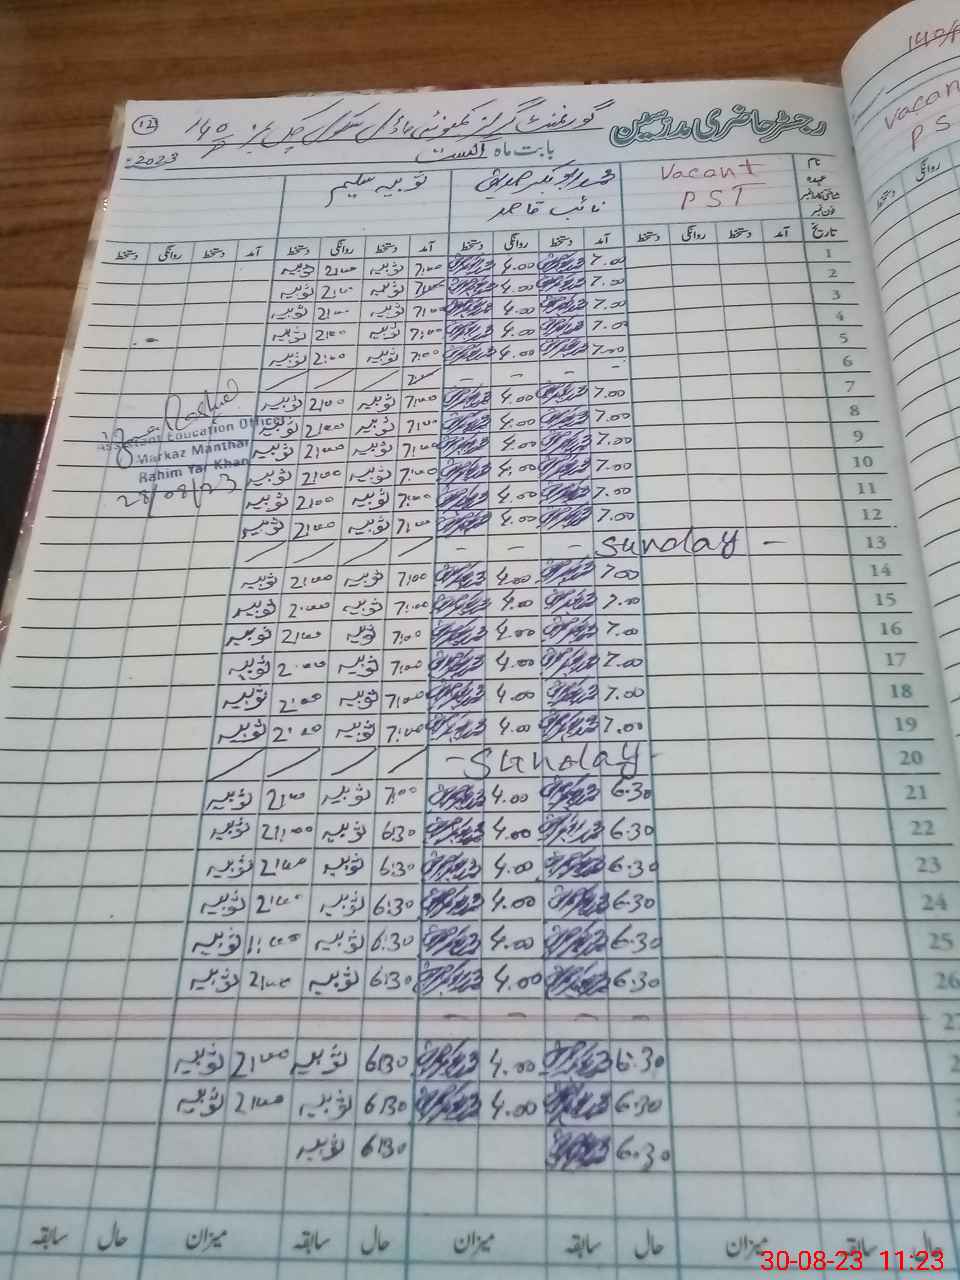 رجسٹر حاضری مدرسین گورنمنٹ گرلز کمیونٹی ماڈل سکول چک نمبر 12
بابت ماہ اگست 2023
نام Vacant محمد ابوبکر صدیق ثوبیہ سلیم
عہدہ PST نائب قاصد
تاریخ آمد دستخط روانگی دستخط آمد دستخط روانگی دستخط آمد دستخط روانگی دستخط آمد دستخط روانگی دستخط
1 7.00 4.00 7:00 ثوبیہ 2:00 ثوبیہ
2 7.00 4.00 7:00 ثوبیہ 2:00 ثوبیہ
3 7.00 4.00 7:00 ثوبیہ 2:00 ثوبیہ
4 7.00 4.00 7:00 ثوبیہ 2:00 ثوبیہ
5 7.00 4.00 7:00 ثوبیہ 2:00 ثوبیہ
6 - - - -
7 7.00 4.00 7:00 ثوبیہ 2:00 ثوبیہ
8 7.00 4.00 7:00 ثوبیہ 2:00 ثوبیہ
9 7.00 4.00 7:00 ثوبیہ 2:00 ثوبیہ
10 7.00 4.00 7:00 ثوبیہ 2:00 ثوبیہ
11 7.00 4.00 7:00 ثوبیہ 2:00 ثوبیہ
12 7.00 4.00 7:00 ثوبیہ 2:00 ثوبیہ
13 - Sunday - - -
14 7.00 4.00 7:00 ثوبیہ 2:00 ثوبیہ
15 7.00 4.00 7:00 ثوبیہ 2:00 ثوبیہ
16 7.00 4.00 7:00 ثوبیہ 2:00 ثوبیہ
17 7.00 4.00 7:00 ثوبیہ 2:00 ثوبیہ
18 7.00 4.00 7:00 ثوبیہ 2:00 ثوبیہ
19 7.00 4.00 7:00 ثوبیہ 2:00 ثوبیہ
20 - Sunday -
21 6.30 4.00 7:00 ثوبیہ 2:00 ثوبیہ
22 6.30 4.00 6:30 ثوبیہ 2:00 ثوبیہ
23 6.30 4.00 6:30 ثوبیہ 2:00 ثوبیہ
24 6.30 4.00 6:30 ثوبیہ 2:00 ثوبیہ
25 6.30 4.00 6:30 ثوبیہ 1:00 ثوبیہ
26 6.30 4.00 6:30 ثوبیہ 2:00 ثوبیہ
27 - - - -
6.30 4.00 6:30 ثوبیہ 2:00 ثوبیہ
6.30 4.00 6:30 ثوبیہ 2:00 ثوبیہ
6.30 6:30 ثوبیہ
حال سابقہ میزان حال سابقہ میزان حال سابقہ میزان حال سابقہ
Assistant Education Officer
Markaz Manthar
Rahim Yar Khan
28/08/23
Vacant
PS
روانگی
دستخط
30-08-23 11:23